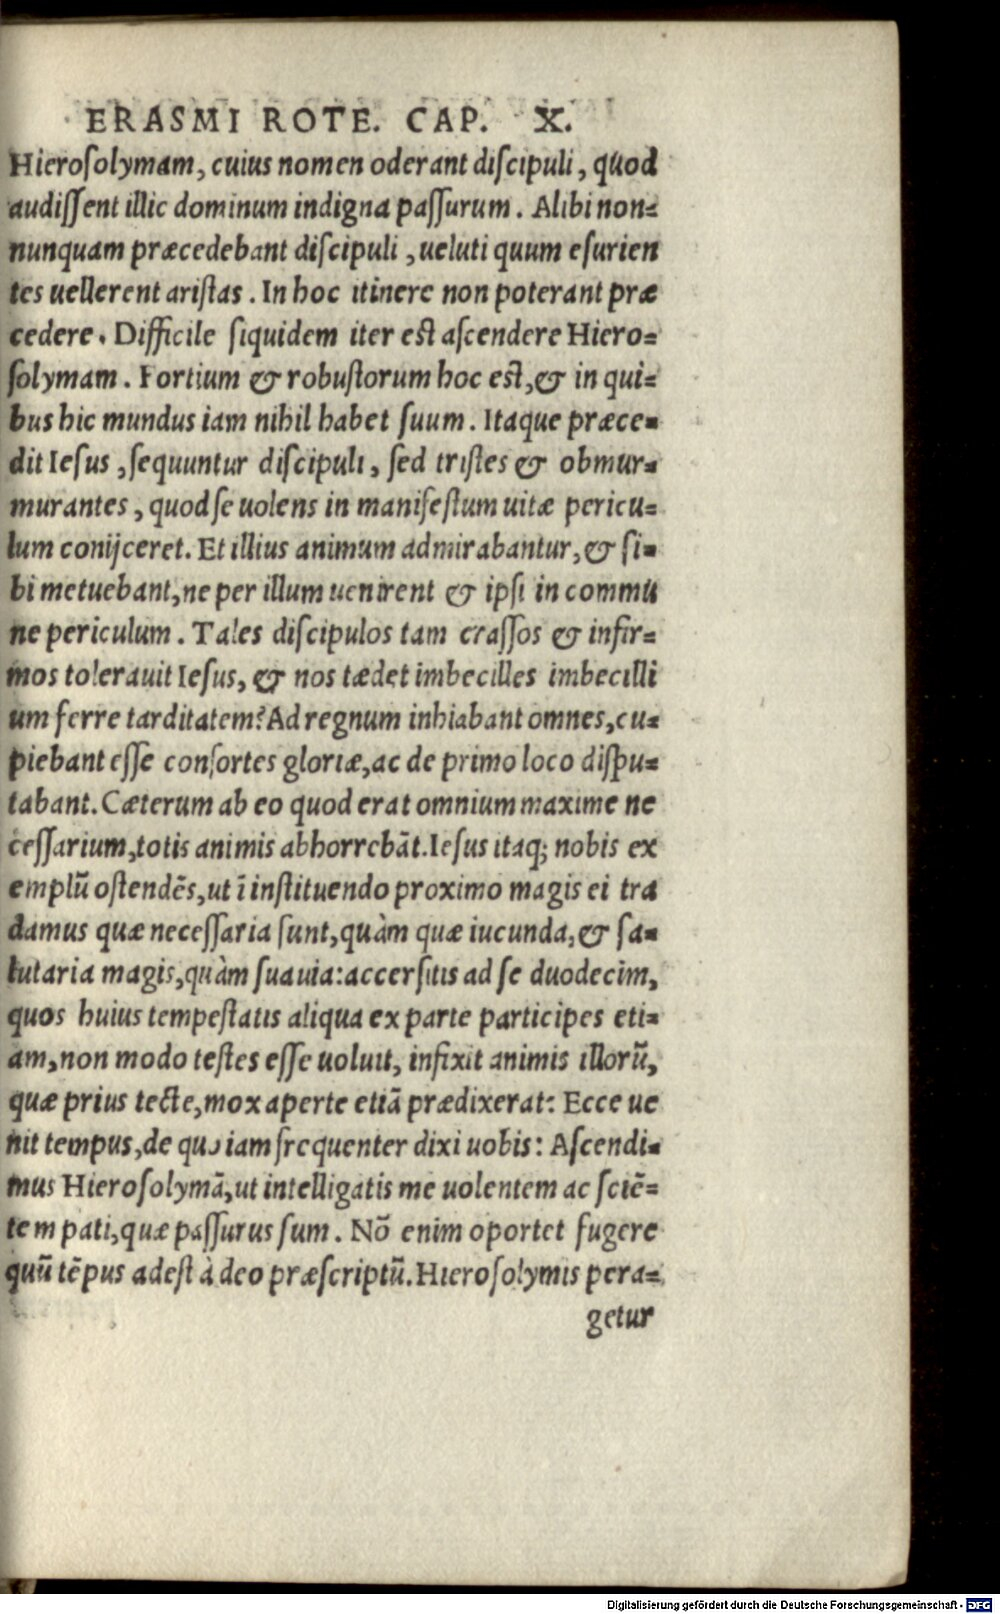 ERASMI ROTE. CAP. X.
Hierosolymam, cuius nomen oderant discipuli, quod
audissent illic dominum indigna passurum. Alibi non=
nunquam præcedebant discipuli, ueluti quum esurien
tes uellerent aristas. In hoc itinere non poterant præ
cedere. Difficile siquidem iter est ascendere Hiero=
solymam. Fortium & robustorum hoc est, & in qui=
bus hic mundus iam nihil habet suum. Itaque præce=
dit Iesus, sequuntur discipuli, sed tristes & obmur=
murantes, quod se uolens in manifestum uitæ pericu=
lum conijceret. Et illius animum admirabantur, & si=
bi metuebant, ne per illum uenirent & ipsi in commū
ne periculum. Tales discipulos tam crassos & infir=
mos tolerauit Iesus, & nos tædet imbecilles imbecilli
um ferre tarditatem? Ad regnum inhiabant omnes, cu=
piebant esse consortes gloriæ, ac de primo loco dispu=
tabant. Cæterum ab eo quod erat omnium maxime ne
cessarium, totis animis abhorrebāt. Iesus itaq; nobis ex
emplū ostendēs, ut ī instituendo proximo magis ei tra
damus quæ necessaria sunt, quàm quæ iucunda, & sa=
lutaria magis, quàm suauia: accersitis ad se duodecim,
quos huius tempestatis aliqua ex parte participes eti=
am, non modo testes esse uoluit, infixit animis illorū,
quæ prius tecte, mox aperte etiā prædixerat: Ecce ue
nit tempus, de quo iam frequenter dixi uobis: Ascendi=
mus Hierosolymā, ut intelligatis me uolentem ac sciē=
tem pati, quæ passurus sum. Nō enim oportet fugere
quū tēpus adest à deo præscriptū. Hierosolymis pera=
getur
Digitalisierung gefördert durch die Deutsche Forschungsgemeinschaft - DFG